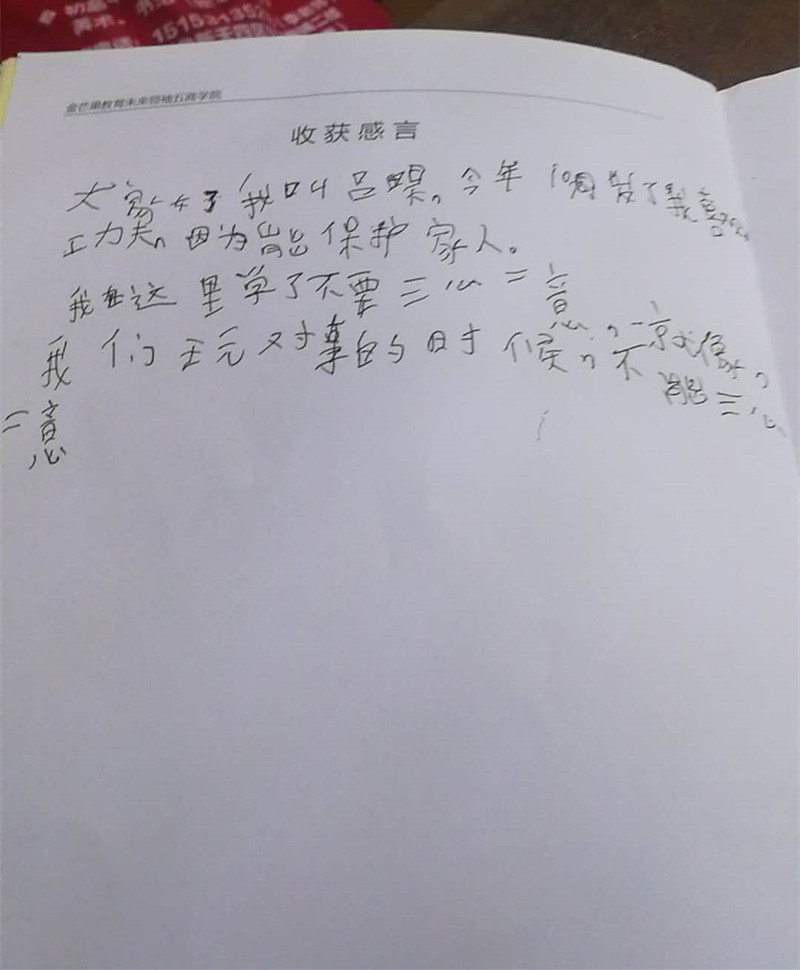 美术、书法
1515
金芒果教育未来领袖五商学院
收获感言
大家好我叫吕，今年10周岁了我喜欢
工力夫，因为能保护家人。
我在这里学了不要三心二意
我们玩对拿的时候，一京尤像，
不能三心
二意